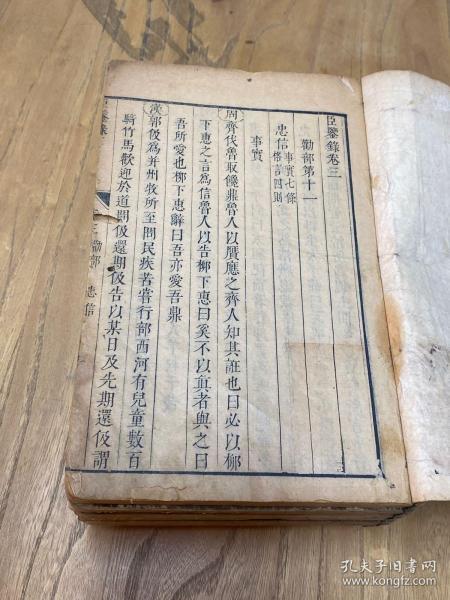 臣鑒錄卷三
勸部第十一
忠信 事實七條 格言四則
事實
周齊伐魯取饞鼎魯人以贋應之齊人知其詐也曰必以柳
下惠之言為信魯人以告柳下惠曰奚不以真者與之曰
吾所愛也柳下惠辭曰吾亦愛吾鼎
漢郭伋為并州牧所至問民疾苦嘗行部西河有兒童數百
騎竹馬歡迎於道間伋還期伋告以某日及先期還伋謂
臣鑒錄
三 勸部 忠信
孔夫子旧书网
www.kongfz.com